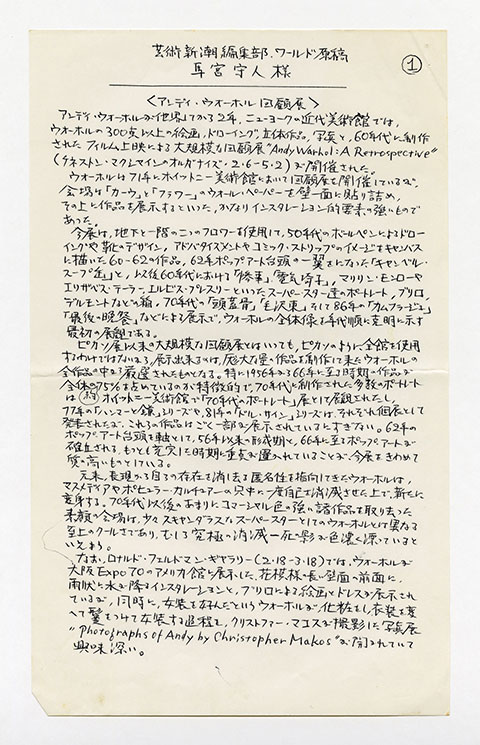 芸術新潮編集部、ワールド原稿
①
耳宮守人様
〈アンディ・ウォーホル回顧展〉
アンディ・ウォーホルが他界してから2年、ニューヨークの近代美術館では、
ウォーホルの300点以上の絵画、ドローイング、立体作品、写真と、60年代に制作
されたフィルム上映による大規模な回顧展"Andy Warhol: A Retrospective"
(キネストン・マクシャインのオルガナイズ・2・6-5・2)が開催された。
ウォーホルは71年にホイットニー美術館において回顧展を開催しているが、
会場は「カーウ」と「フラワー」のウォール・ペーパーを壁一面に貼り詰め、
その上に作品を展示するといった、かなりインスタレーション的要素の強いもので
あった。
今展は、地下と一階の二つのフロワーを使用して、50年代のボールペンによるドロー
イングや靴のデザイン、アドバタイズメントやコミック・ストリップのイメージをキャンバス
に描いた60-62の作品、62年ポップアート台頭の一翼をになった「キャンベル・
スープ缶」と、以後60年代における「惨事」「電気椅子」、マリリン・モンローや
エリザベス・テーラー、エルビス・プレスリーといったスーパースター達のポートレート、ブリロ、
デルモンテなどの箱、70年代の「頭蓋骨」「毛沢東」そして86年の「カムフラージュ」
「最後の晩餐」などによる展示で、ウォーホルの全体像を年代順に克明に示す
最初の展覧である。
ピカソ展以来の大規模な回顧展とはいっても、ピカソのように全館を使用
するわけではないから、展示出来るのは、膨大な量の作品を制作して来たウォーホルの
全作品の中から厳選されたものとなる。特に1956年から66年に至る時期の作品が
全体の75%を占めているのが特徴的で、70年代に制作された多数のポートレート
は(約)ホイットニー美術館で「70年代のポートレート」展として展観されたし、
77年の「ハンマーと鎌」シリーズや、81年の「ドル・サイン」シリーズは、それぞれ個展として
発表されたが、これらの作品はごく一部が展示されているにすぎない。62年の
ポップ・アート台頭を軸として、56年以来の形成期と、66年に至るポップ・アートが
確立される、もっとも充実した時期に重点が置かれていることが、今展をきわめて
質の高いものにしている。
元来、表現から自らの存在を消し去る匿名性を指向してきたウォーホルは、
マスメディアやポピュラー・カルチュアーの只中に一度自己を消滅させた上で、新たに
変身する。70年代以後のあまりにコマーシャル色の強い諸作品を取り去った
素顔の会場は、少々スキャンダラスなスーパースターとしてのウォーホルとは異なる
至上のクールさであり、むしろ究極の消滅-死の影が色濃く漂っていると
いえよう。
なお、ロナルド・フェルドマン・ギャラリー(2・18-3・18)では、ウォーホルが
大阪Expo70のアメリカ館に展示した、花模様の長い壁面の前面に、
雨状に水が降るインスタレーションと、ブリロによる絵画とドレスが展示され
ているが、同時に、女装を好んだというウォーホルが化粧をし、衣装を変
えて鬘をつけて女装する過程を、クリストファー・マコスが撮影した写真展
"Photographs of Andy by Christopher Makos"が開かれていて
興味深い。